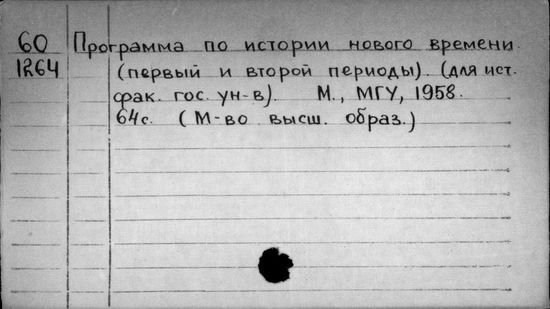 60 Программа по истории нового времени
1264 (первый и второй периоды). (для ист.
фак. гос. ун-в). М., МГУ, 1958.
64 с. (М-во высш. образ.)